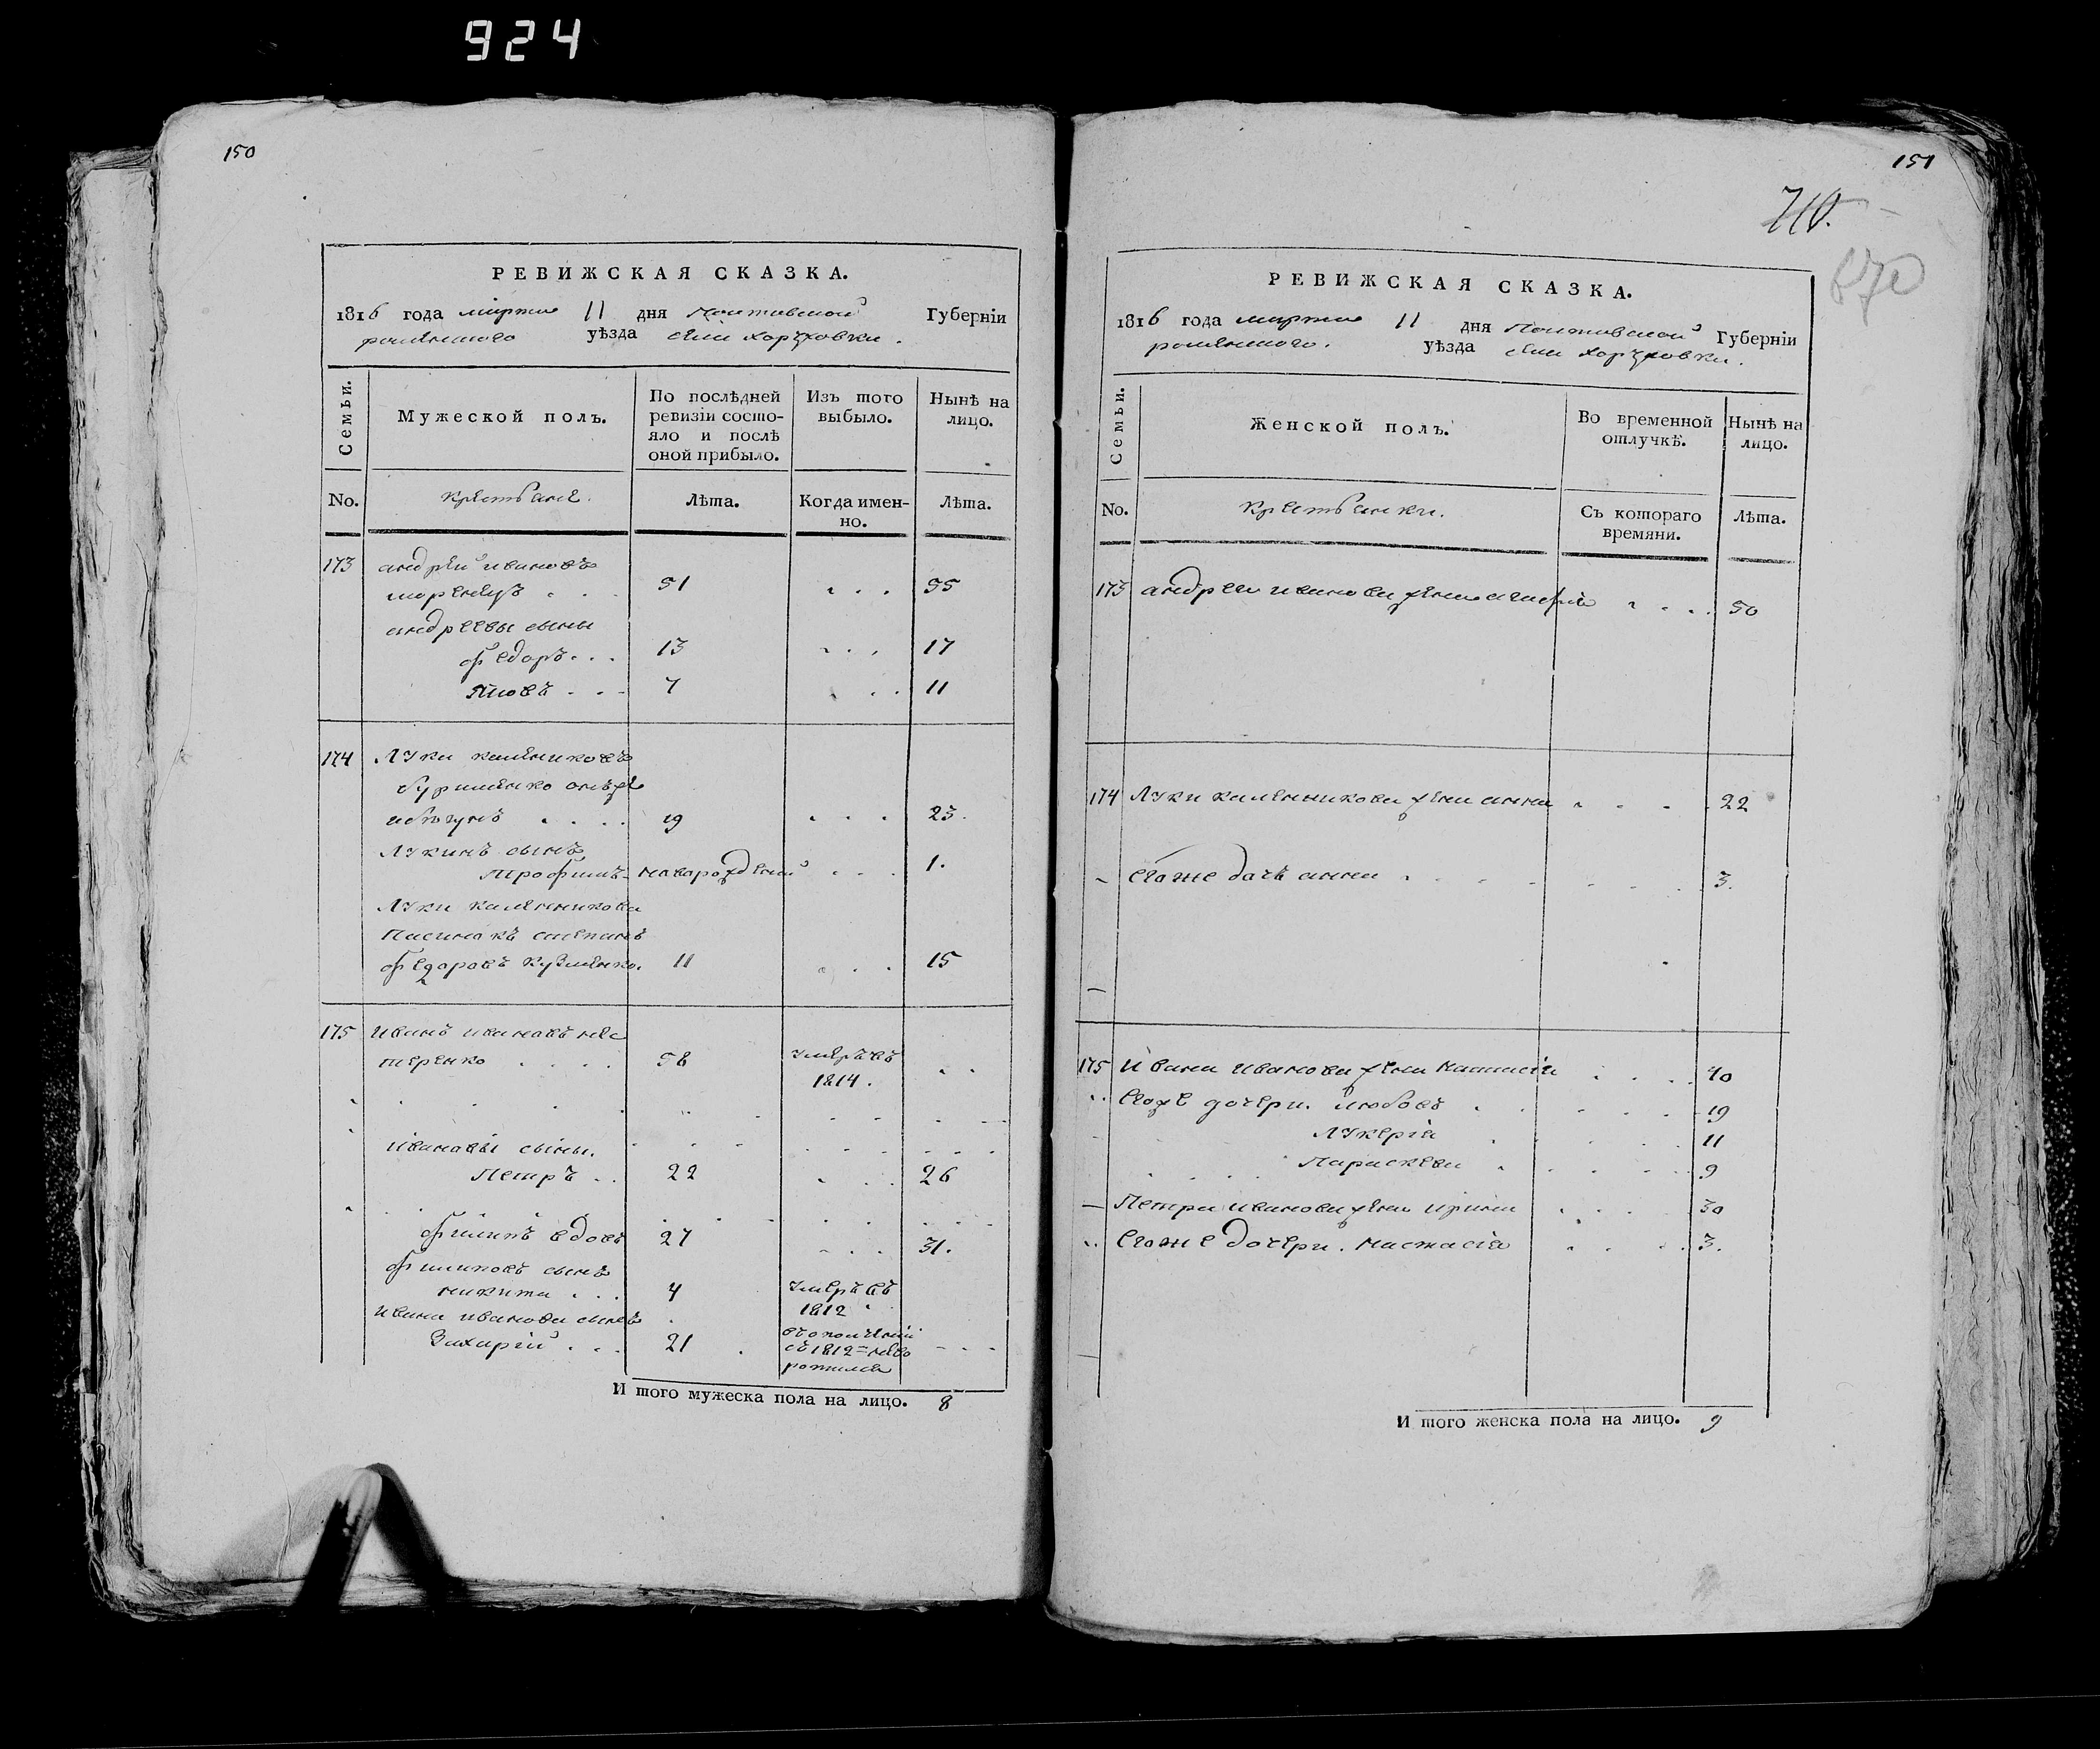 924
150
РЕВИЖСКАЯ СКАЗКА.
1816 года марта 11 дня Полтавской Губерніи
роменского уѣзда села Хоружовки.
Семьи.
Мужеской полъ.
По послѣдней ревизіи состояло и послѣ оной прибыло.
Изъ того выбыло.
Нынѣ на лицо.
No.
крестьяне.
Лѣта.
Когда именно.
Лѣта.
173 андрей ивановъ
51 . . . 55
андреевы сыны
федоръ . . . 13 . . . 17
яковъ . . . 7 . . . 11
174 Луки калениковъ
19 . . . 23.
Лукинъ сынъ
трофимъ новорожденой . . . 1.
Луки каленикова
пасинокъ степанъ
федоровъ кузменко. 11 . . . 15
175 иванъ ивановъ нес
теренко . . . . 58 умеръ въ . .
1814.
ивановы сыны.
Петръ . . 22 . . . 26
филипъ вдовъ 27 . . . 31.
филиповъ сынъ
никита . . . 4 умеръ въ
1812
ивана иванова сынъ
Захарій . . . 21 въ ополченіи . . .
съ 1812 = нево
ротился
И того мужеска пола на лицо. 8
151
710.
670
РЕВИЖСКАЯ СКАЗКА.
1816 года марта 11 дня Полтавской Губерніи
роменского. уѣзда села Хоружовки.
Семьи.
Женской полъ.
Во временной отлучкѣ.
Нынѣ на лицо.
No.
крестьянки.
Съ котораго времяни.
Лѣта.
173 андрея иванова жена агафія . . . . 50
174 Луки каленникова жена анна . . . . 22
егоже дочь анна . . . . 3.
175 ивана иванова жена настасія . . . . 40
егоже дочери. любовъ . . . . 19
Лукерія . . . . 11
Параскева . . . . 9
Петра иванова жена ирина . . . . 30
егоже дочери. настасія . . . . 3.
И того женска пола на лицо. 9